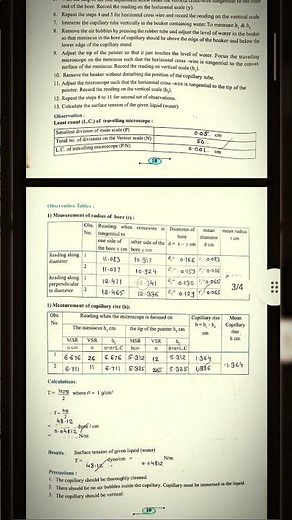 end of the bore. Record the reading on the horizontal scale (y).
6. Repeat the steps 4 and 5 for horizontal cross wire and record the reading on the vertical scale
7. Immerse the capillary tube vertically in the beaker containing water. To measure h₁ & h₂
8. Remove the air bubbles by pressing the rubber tube and adjust the level of water in the beaker
so that meniscus in the bore of capillary should be above the edge of the beaker and below the
lower edge of the capillary stand.
9. Adjust the tip of the pointer so that it just touches the level of water. Focus the travelling
microscope on the meniscus such that the horizontal cross-wire is tangential to the convex
surface of the meniscus. Record the reading on vertical scale (h₁).
10. Remove the beaker without disturbing the position of the capillary tube.
11. Adjust the microscope such that the horizontal cross-wire is tangential to the tip of the
pointer. Record the reading on the vertical scale (h₂).
12. Repeat the steps 8 to 11 for second set of observations.
13. Calculate the surface tension of the given liquid (water).
Observation :
Least count (L.C.) of travelling microscope :
Smallest division of main scale (P) 0.05 cm
Total no. of divisions on the Vernier scale (N) 50
L.C. of travelling microscope (P/N) 0.001 cm
Observation Tables :
1) Measurement of radius of bore (r) :
Obs. No. Reading when crosswire is tangential to Diameter of bore d = x - y cm mean diameter d cm mean radius r cm
one side of the bore x cm other side of the bore y cm
Reading along diameter 1 11.083 10.917 0.166
2 11.077 10.924 0.153
Reading along perpendicular to diameter 1 12.471 12.341 0.130
2 12.465 12.336 0.129
3/4
1) Measurement of capillary rise (h) :
Obs. No. Reading when the microscope is focused on Capillary rise h = h₁ - h₂ cm Mean Capillary rise h cm
The meniscus h₁ cm the tip of the pointer h₂ cm
MSR a cm VSR n h₁ a+n×L.C MSR b cm VSR n h₂ b+n×L.C
1 6.676 26 6.676 5.312 12 5.312 1.364
2 6.711 11 6.711 5.325 5.325 1.364
Calculations:
T = hrρg / 2 where ρ = 1 g/cm³
= 48.12 dyne / cm
= 0.04812 N/m
Results : Surface tension of given liquid (water)
T = 48.12 dyne/cm = 0.04812 N/m
Precautions :
1. The capillary should be thoroughly cleaned.
2. There should be no air bubbles inside the capillary. Capillary must be immersed in the liquid.
3. The capillary should be vertical.